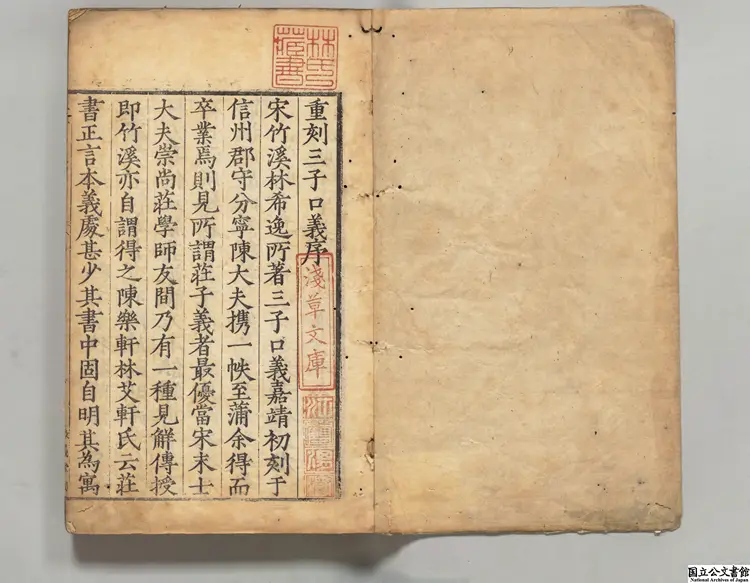 林氏藏書
重刻三子口義序
淺草文庫
宋竹溪林希逸所著三子口義嘉靖初刻于
信州郡守分寧陳大夫携一帙至蒲余得而
卒業焉則見所謂莊子義者最優當宋末士
大夫崇尚莊學師友間乃有一種見解傳授
即竹溪亦自謂得之陳樂軒林艾軒氏云莊
書正言本義處甚少其書中固自明其為寓
国立公文書館
National Archives of Japan